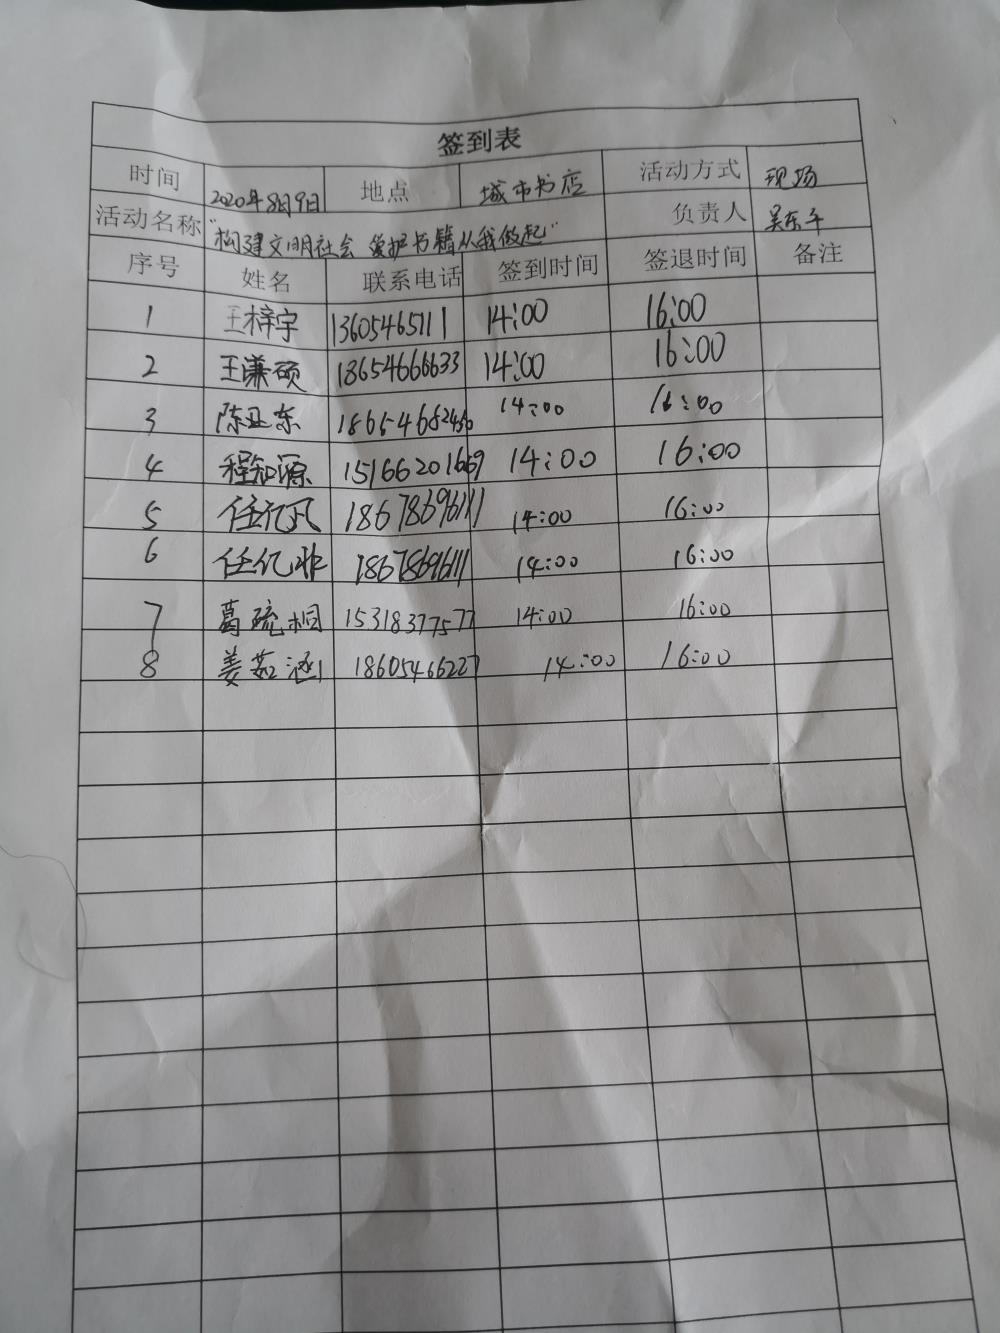 签到表
时间 2020年8月9日 地点 城市书店 活动方式 现场
活动名称 "构建文明社会 爱护书籍从我做起" 负责人 吴东平
序号 姓名 联系电话 签到时间 签退时间 备注
1 王梓宇 13605465111 14:00 16:00
2 王谦硕 18654666633 14:00 16:00
3 陈正东 14:00 16:00
4 程知源 15166201669 14:00 16:00
5 任亿凡 18678696111 14:00 16:00
6 任亿非 18678696111 14:00 16:00
7 葛琉桐 15318377577 14:00 16:00
8 姜茹涵 18605466227 14:00 16:00